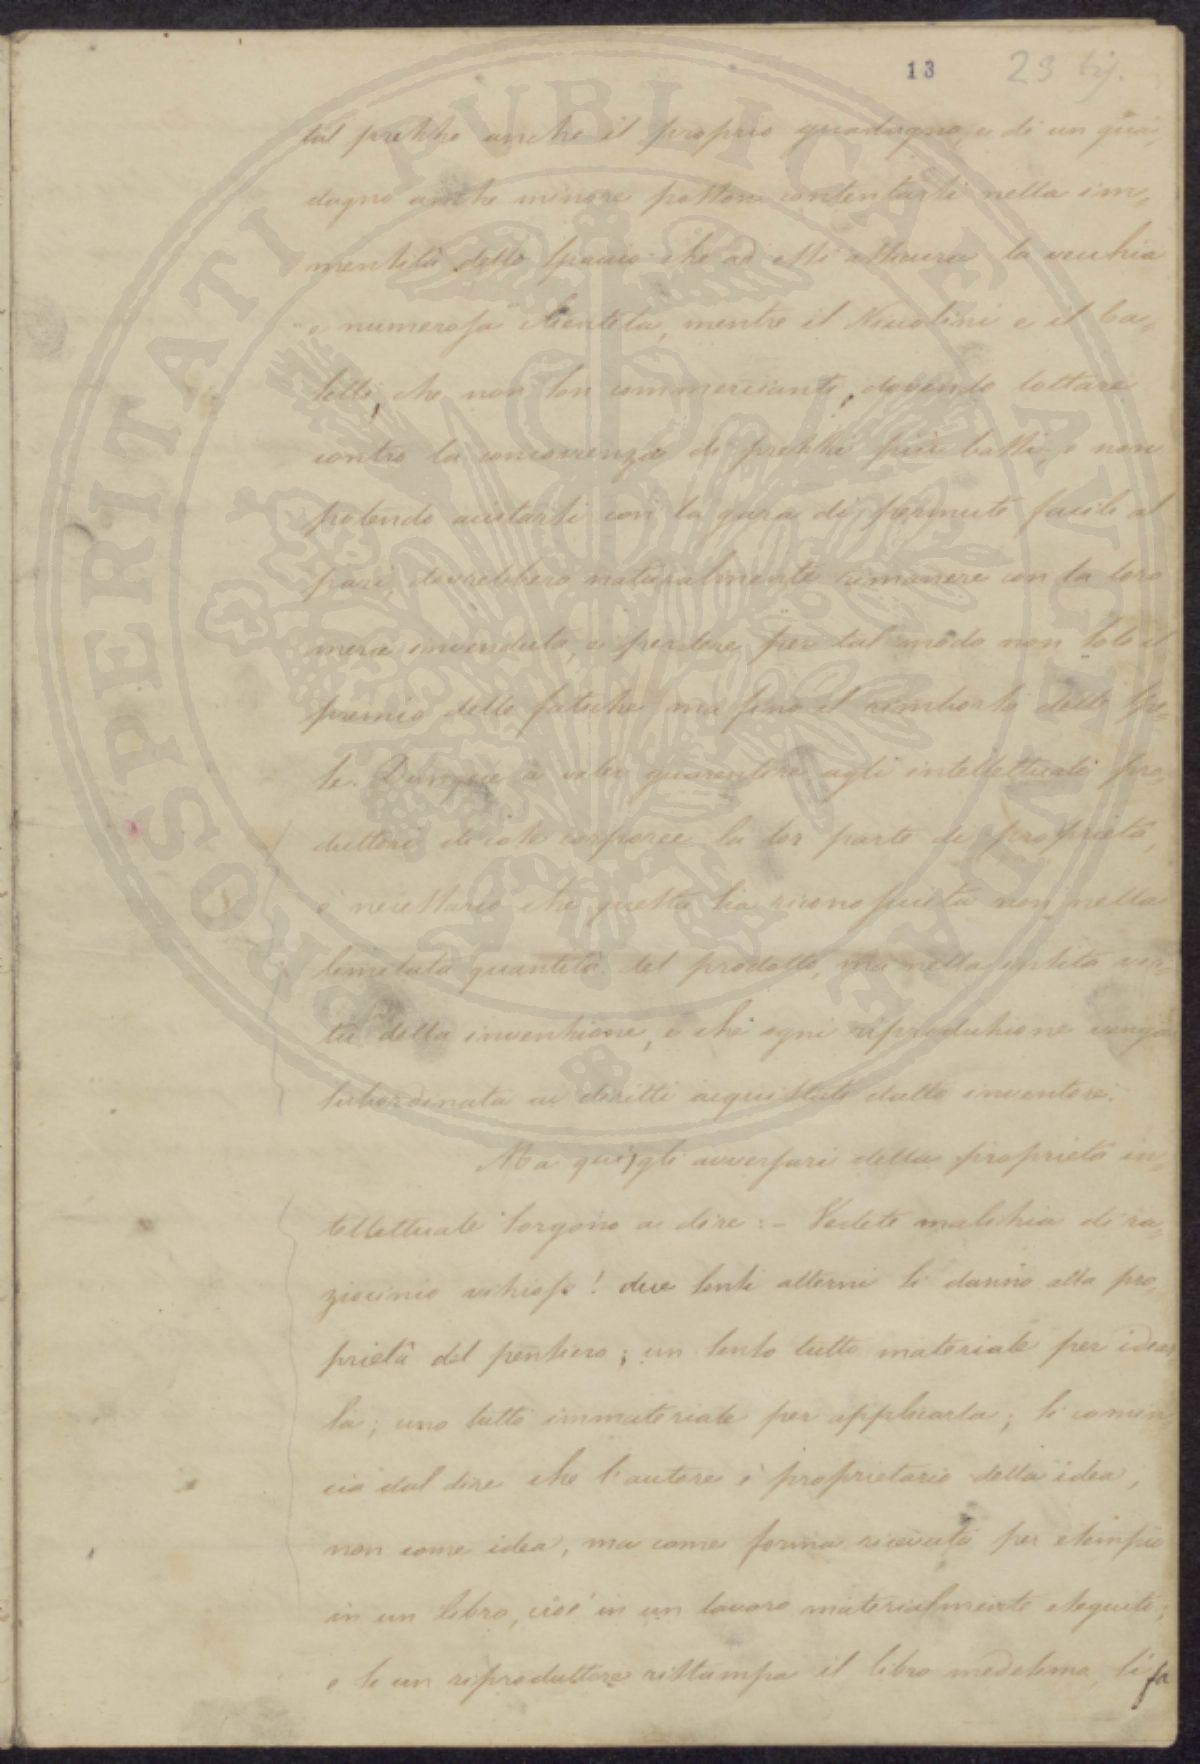 13 23
tal prezzo anche il proprio guadagno, e di un gua-
dagno anche minore posson contentarsi nella im-
mensità dello spaccio che ad essi assicura la vecchia
e numerosa clientela, mentre il Niccolini e il Ba-
telli, che non son commercianti, dovendo lottare
contro la concorrenza di prezzi più bassi, e non
potendo aiutarsi con la gara di permute facile al
pari, dovrebbero naturalmente rimanere con la loro
merce invenduta, e perdere per tal modo non solo il
premio delle fatiche ma fino il rimborso delle spe-
se. Dunque a voler guarentire agli intellettuali pro-
duttori di cose corporee la lor parte di proprietà,
è necessario che questa sia riconosciuta non nella
limitata quantità del prodotto, ma nella entità
della invenzione, e che ogni riproduzione venga
subordinata ai diritti acquistati dallo inventore.
Ma qui, gli avversari della proprietà in-
tellettuale sorgono a dire: - Vedete malizia di ra-
ziocinio vizioso! due sensi alterni si danno alla pro-
prietà del pensiero; un senso tutto materiale per idear-
la; uno tutto immateriale per applicarla; si comin
cia dal dire che l'autore è proprietario della idea,
non come idea, ma come forma ricevuta per esempio
in un libro, cioè in un lavoro materialmente eseguito;
e se un riproduttore ristampa il libro medesimo, si fa
PROSPERITATI PUBLICAE AUGENDAE